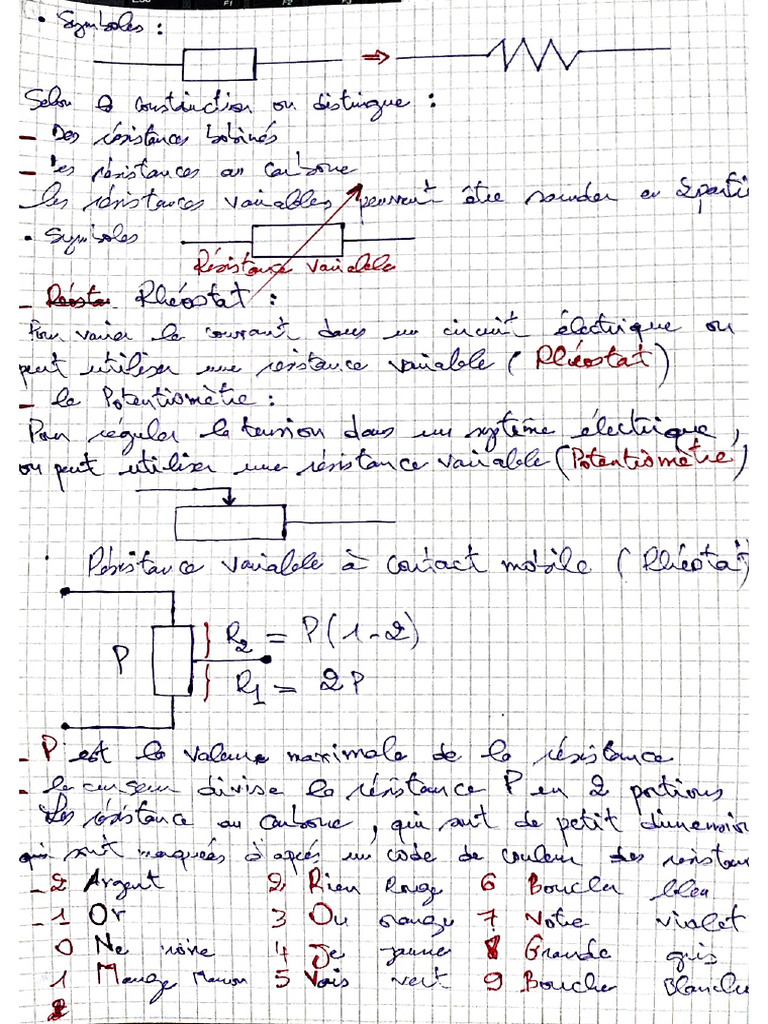 • Symboles :
Selon construction on distingue :
- Des résistances bobinés
- Les résistances au carbone
Les résistances variables peuvent être scinder en 2 parti
• Symboles
Résistance variable
- Rhéostat :
Pour varier le courant dans un circuit électrique on
peut utiliser une résistance variable (Rhéostat)
- Le Potentiomètre :
Pour réguler la tension dans un système électrique,
on peut utiliser une résistance variable (Potentiomètre)
Résistance variable à contact mobile (Rhéostat)
P
R2 = P(1-2)
R1 = 2P
- P est la valeur maximale de la résistance
- Le curseur divise la résistance P en 2 portions
Les résistance au carbone, qui sont de petit dimension
qui sont marqués d'après un code de couleur des résistan
-2 Argent 2 Rien Rouge 6 Boucler bleu
-1 Or 3 Ou orange 7 Notre violet
0 Ne noire 4 Je jaune 8 Grande gris
1 Mange Marron 5 Vois vert 9 Bouche Blanche
2